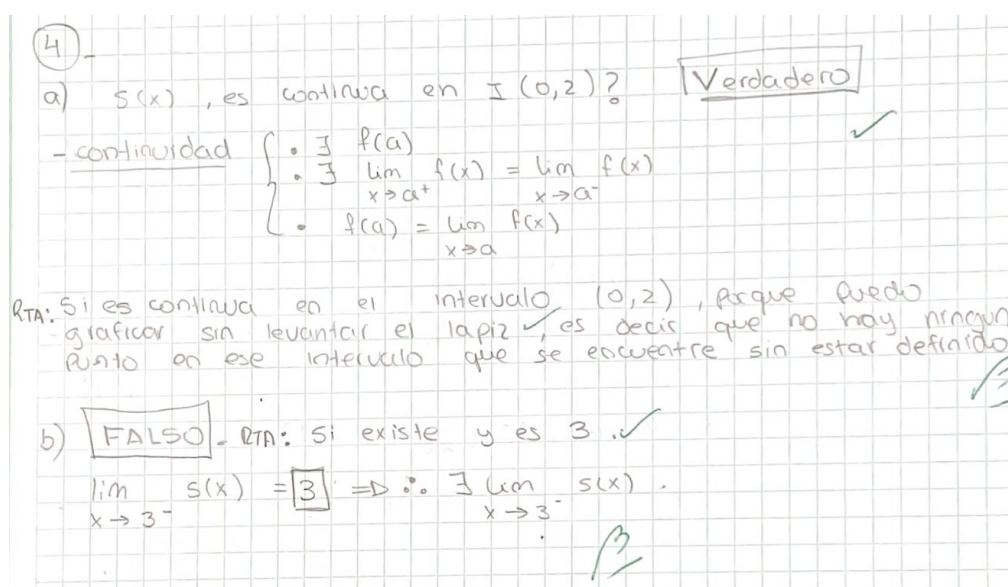 4-
a) S(x), es continua en I (0,2)? Verdadero
- continuidad { • ∃ f(a)
• ∃ lim f(x) = lim f(x)
x→a⁺ x→a⁻
• f(a) = lim f(x)
x→a
RTA: Si es continua en el intervalo (0,2), porque puedo
graficar sin levantar el lapiz ✓, es decir que no hay ningun
punto en ese intervalo que se encuentre sin estar definido
b) FALSO - RTA: Si existe y es 3. ✓
lim S(x) = 3 => ∴ ∃ lim S(x).
x→3⁻ x→3⁻